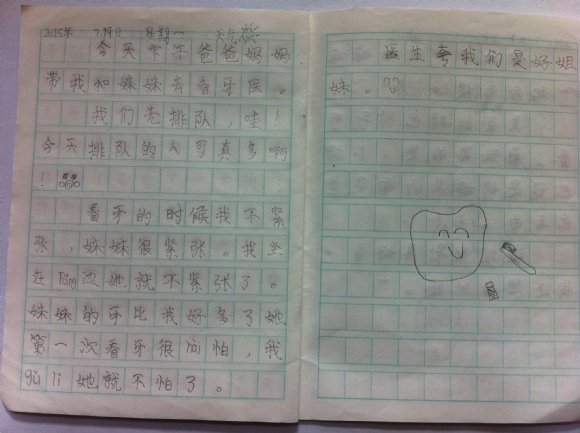 2015年 7月13日 星期一 天气
今天下午爸爸妈妈
带我和妹妹去看牙医。
我们先排队,哇!
今天排队的人可真多啊
!
看牙的时候我不紧
张,妹妹很紧张。我坐
在pang边她就不紧张了。
妹妹的牙比我好多了她
第一次看牙很hai怕,我
gǔ lì她就不怕了。
医生夸我们是好姐
妹。